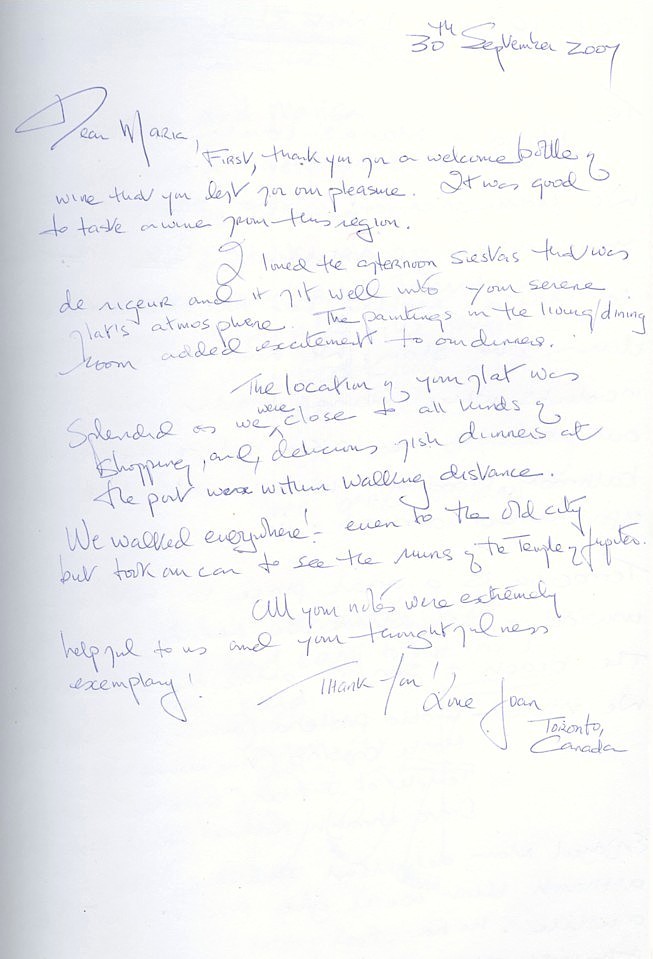 30th September 2007
Dear Maria!
First, thank you for a welcome bottle of
wine that you left for our pleasure. It was good
to taste a wine from this region.
I loved the afternoon siestas that was
de rigeur and it fit well into your serene
flat's atmosphere. The paintings in the living/dining
room added excitement to our dinners.
The location of your flat was
Splendid as we were close to all kinds of
shopping, and, delicious fish dinners at
the port were within walking distance.
We walked everywhere! - even to the old city
but took a car to see the ruins of the Temple of Jupiter.
All your notes were extremely
helpful to us and your thoughtfulness
exemplary!
Thank You!
Love Joan
Toronto,
Canada